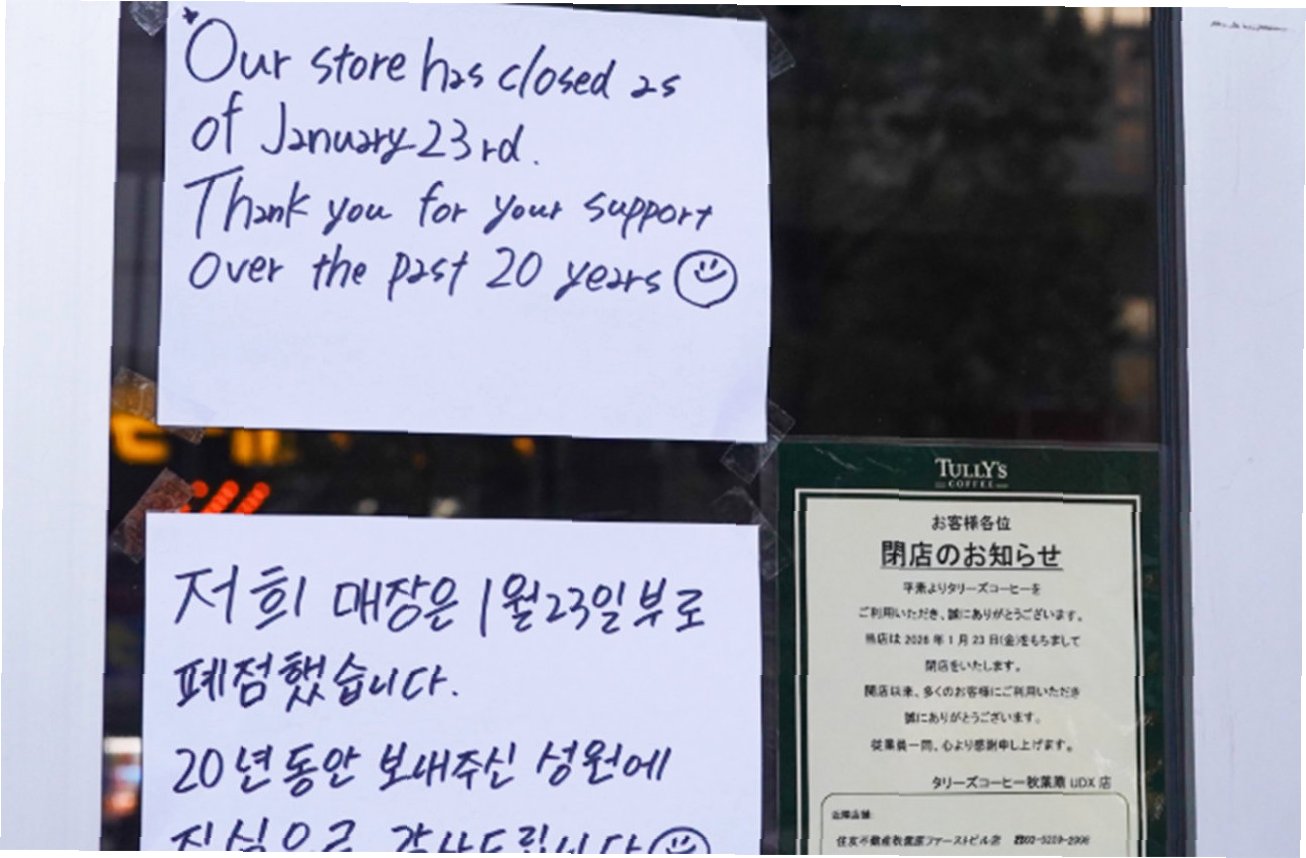 Our store has closed as
of January 23rd.
Thank you for your support
over the past 20 years
저희 매장은 1월23일부로
폐점했습니다.
20년동안 보내주신 성원에
진심으로 감사드립니다
TULLY'S
COFFEE
お客様各位
閉店のお知らせ
平素よりタリーズコーヒーを
ご利用いただき、誠にありがとうございます。
当店は 2026 年 1 月 23 日(金)をもちまして
閉店をいたします。
開店以来、多くのお客様にご利用いただき
誠にありがとうございます。
従業員一同、心より感謝申し上げます。
タリーズコーヒー秋葉原 UDX 店
近隣店舗:
住友不動産秋葉原ファーストビル店